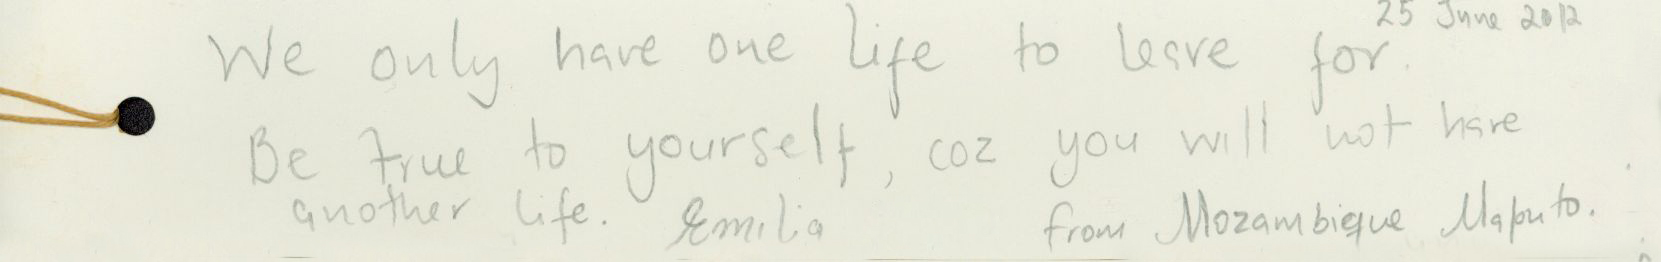 25 June 2012
We only have one life to leave for.
Be true to yourself, coz you will not have
another life. Emilia from Mozambique Maputo.